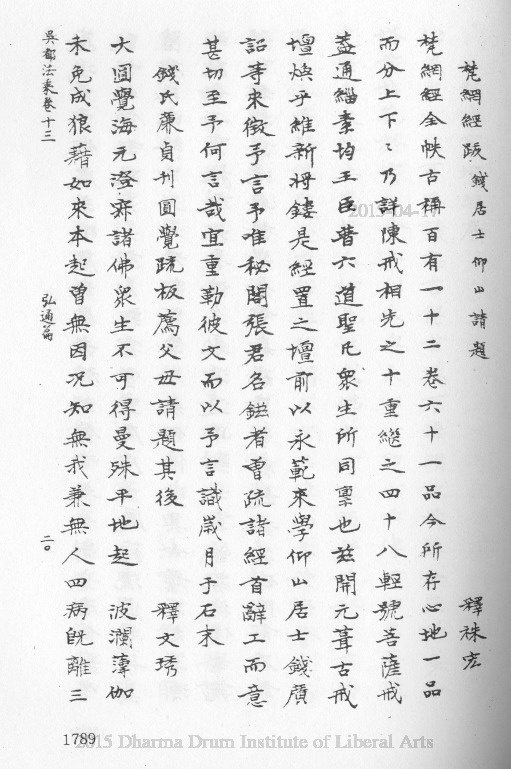 梵網經跋 錢居士仰山請題 釋袾宏
梵網經全帙古稱百有一十二卷六十一品今所存心地一品
而分上下下乃詳陳戒相先之十重繼之四十八輕號菩薩戒
蓋通緇素均王臣普六道聖凡眾生所同稟也茲開元葺古戒
壇煥乎維新將鋟是經置之壇前以永範來學仰山居士錢
詔等來徵予言予唯秘閣張君名鎡者曾疏諸經首辭工而意
甚切至予何言哉宜重勒彼文而以予言識歲月于石末
錢氏廉貞刊圓覺疏板薦父母請題其後 釋文琇
大圓覺海元澄寂諸佛眾生不可得曼殊平地起波瀾薄伽
未免成狼藉如來本起曾無因況知無我兼無人四病既離三
吳都法乘卷十三 弘通篇 二〇
1789
2015-04-17
2015 Dharma Drum Institute of Liberal Arts